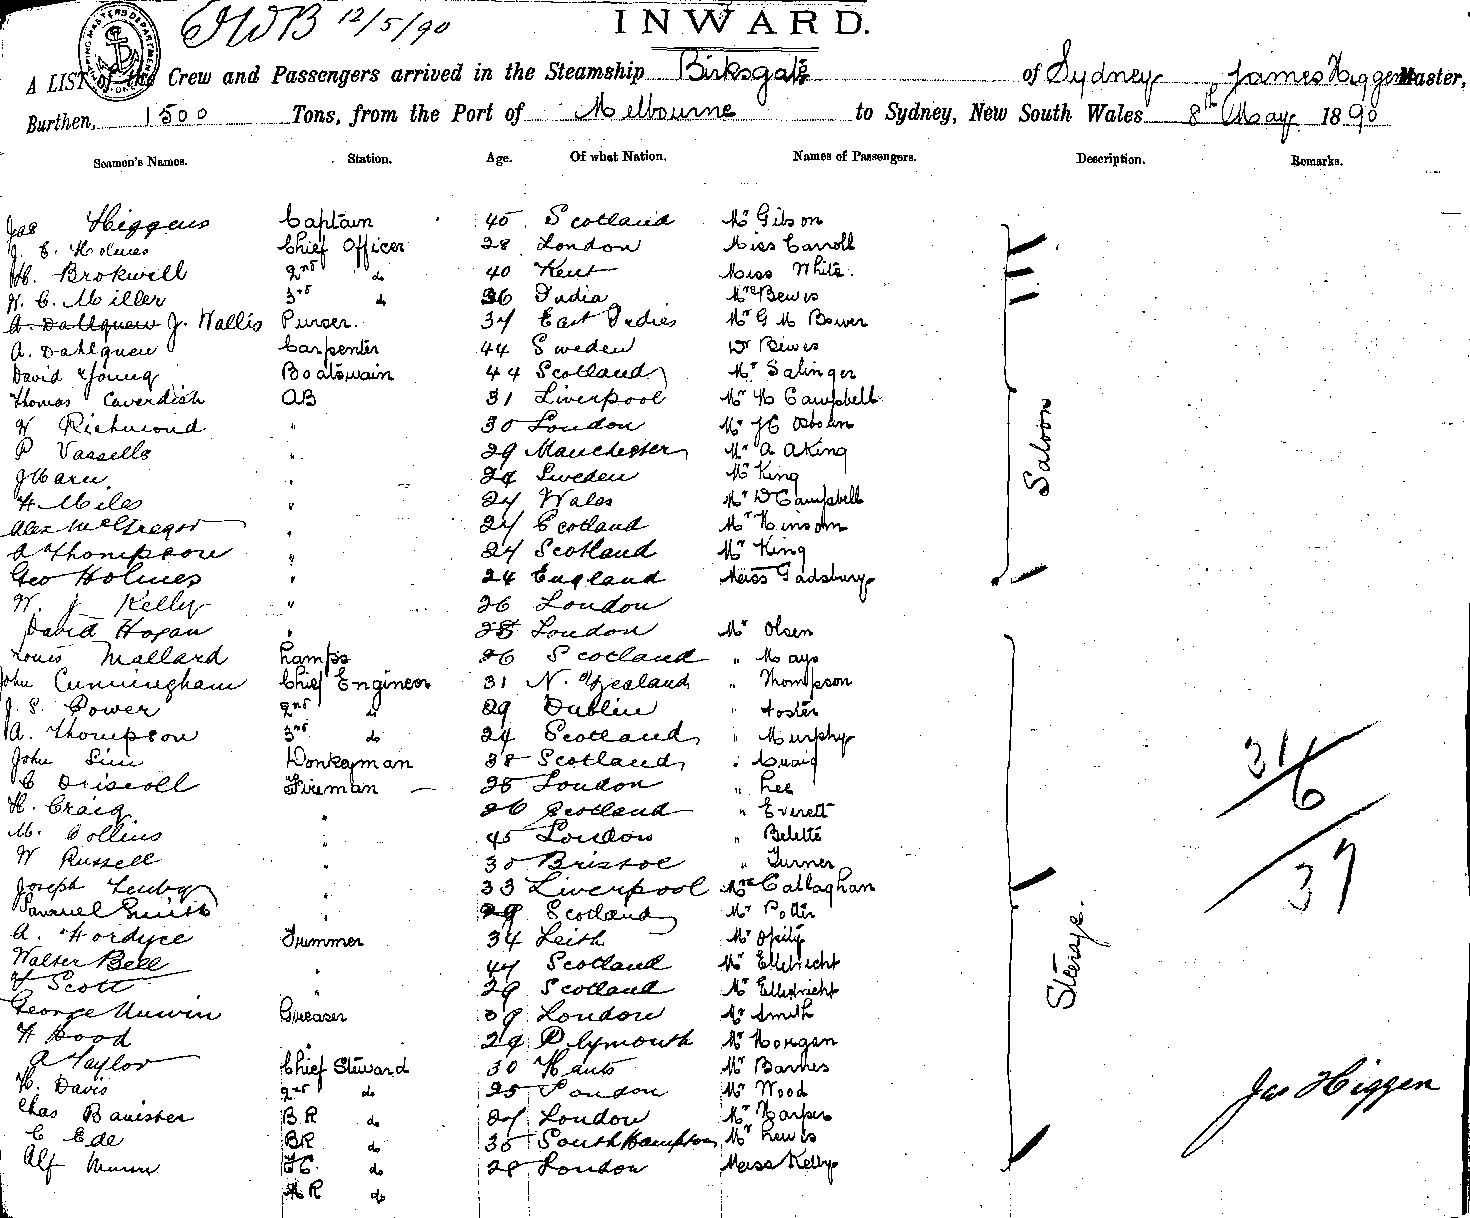 12/5/90
INWARD.
A LIST of the Crew and Passengers arrived in the Steamship Birksgate of Sydney James Higgens Master,
Burthen, 1500 Tons, from the Port of Melbourne to Sydney, New South Wales 8th May 1890
Seamen's Names. Station. Age. Of what Nation. Names of Passengers. Description. Remarks.
Jas Higgens Captain 45 Scotland Mr Gibson
J. E. Holmes Chief Officer 28 London Miss Carroll
H. Brokwell 2nd do 40 Kent Miss White.
W. C. Miller 3rd do 36 India Mrs Bewes
A. Dahlquew J. Wallis Purser. 34 East Indies Mr G M Bower
A. Dahlquew Carpenter 44 Sweden Dr Bewes
David Young Boatswain 44 Scotland Mr Salinger
Thomas Cavendish AB 31 Liverpool Mr H Campbell
W Richmond " 30 London Mr Osborn
P Vassello " 29 Manchester Mr A A King
" 24 Sweden Mr King
H Miles " 24 Wales Mr D Campbell
Alex McGregor " 24 Scotland Mr
A Thompson " 24 Scotland Mr King
Geo Holmes " 24 England Miss Gadsbury
Saloon
W. J Kelly " 26 London
David Hogan " 28 London Mr Olsen
Louis Mallard Lamps 26 Scotland " Mays
John Cunningham Chief Engineer 31 N. Zealand " Thompson
J. S. Power 2nd do 29 Dublin " Foster
A. Thompson 3rd do 24 Scotland " Murphy
John Sim Donkeyman 38 Scotland " Quaig
C Driscoll Fireman 28 London " Lee
H. Craig " 26 Scotland " Everett
M. Collins " 45 London " Belette
W Russell " 30 Bristol " Turner
Joseph " 33 Liverpool Mrs Callaghan
Samuel Smith " 29 Scotland Mr Potter
A. Fordyce Trimmer 34 Leith Mr
Walter Bell " 44 Scotland Mr Ellebricht
F Scott " 29 Scotland Mr Ellebricht
George Unwin Greaser 39 London Mr Smith
H Hood " 29 Plymouth Mr Horgan
A Taylor Chief Steward 30 Hants Mr Barnes
H. Davis 2nd do 25 London Mr Wood
Chas Banister BR do 24 London Mr Harper
C Ede BR do 35 Southampton Mr Lewis
Alf Munn do 28 London Miss Kelly
do
Steerage.
31
6
37
Jas Higgen